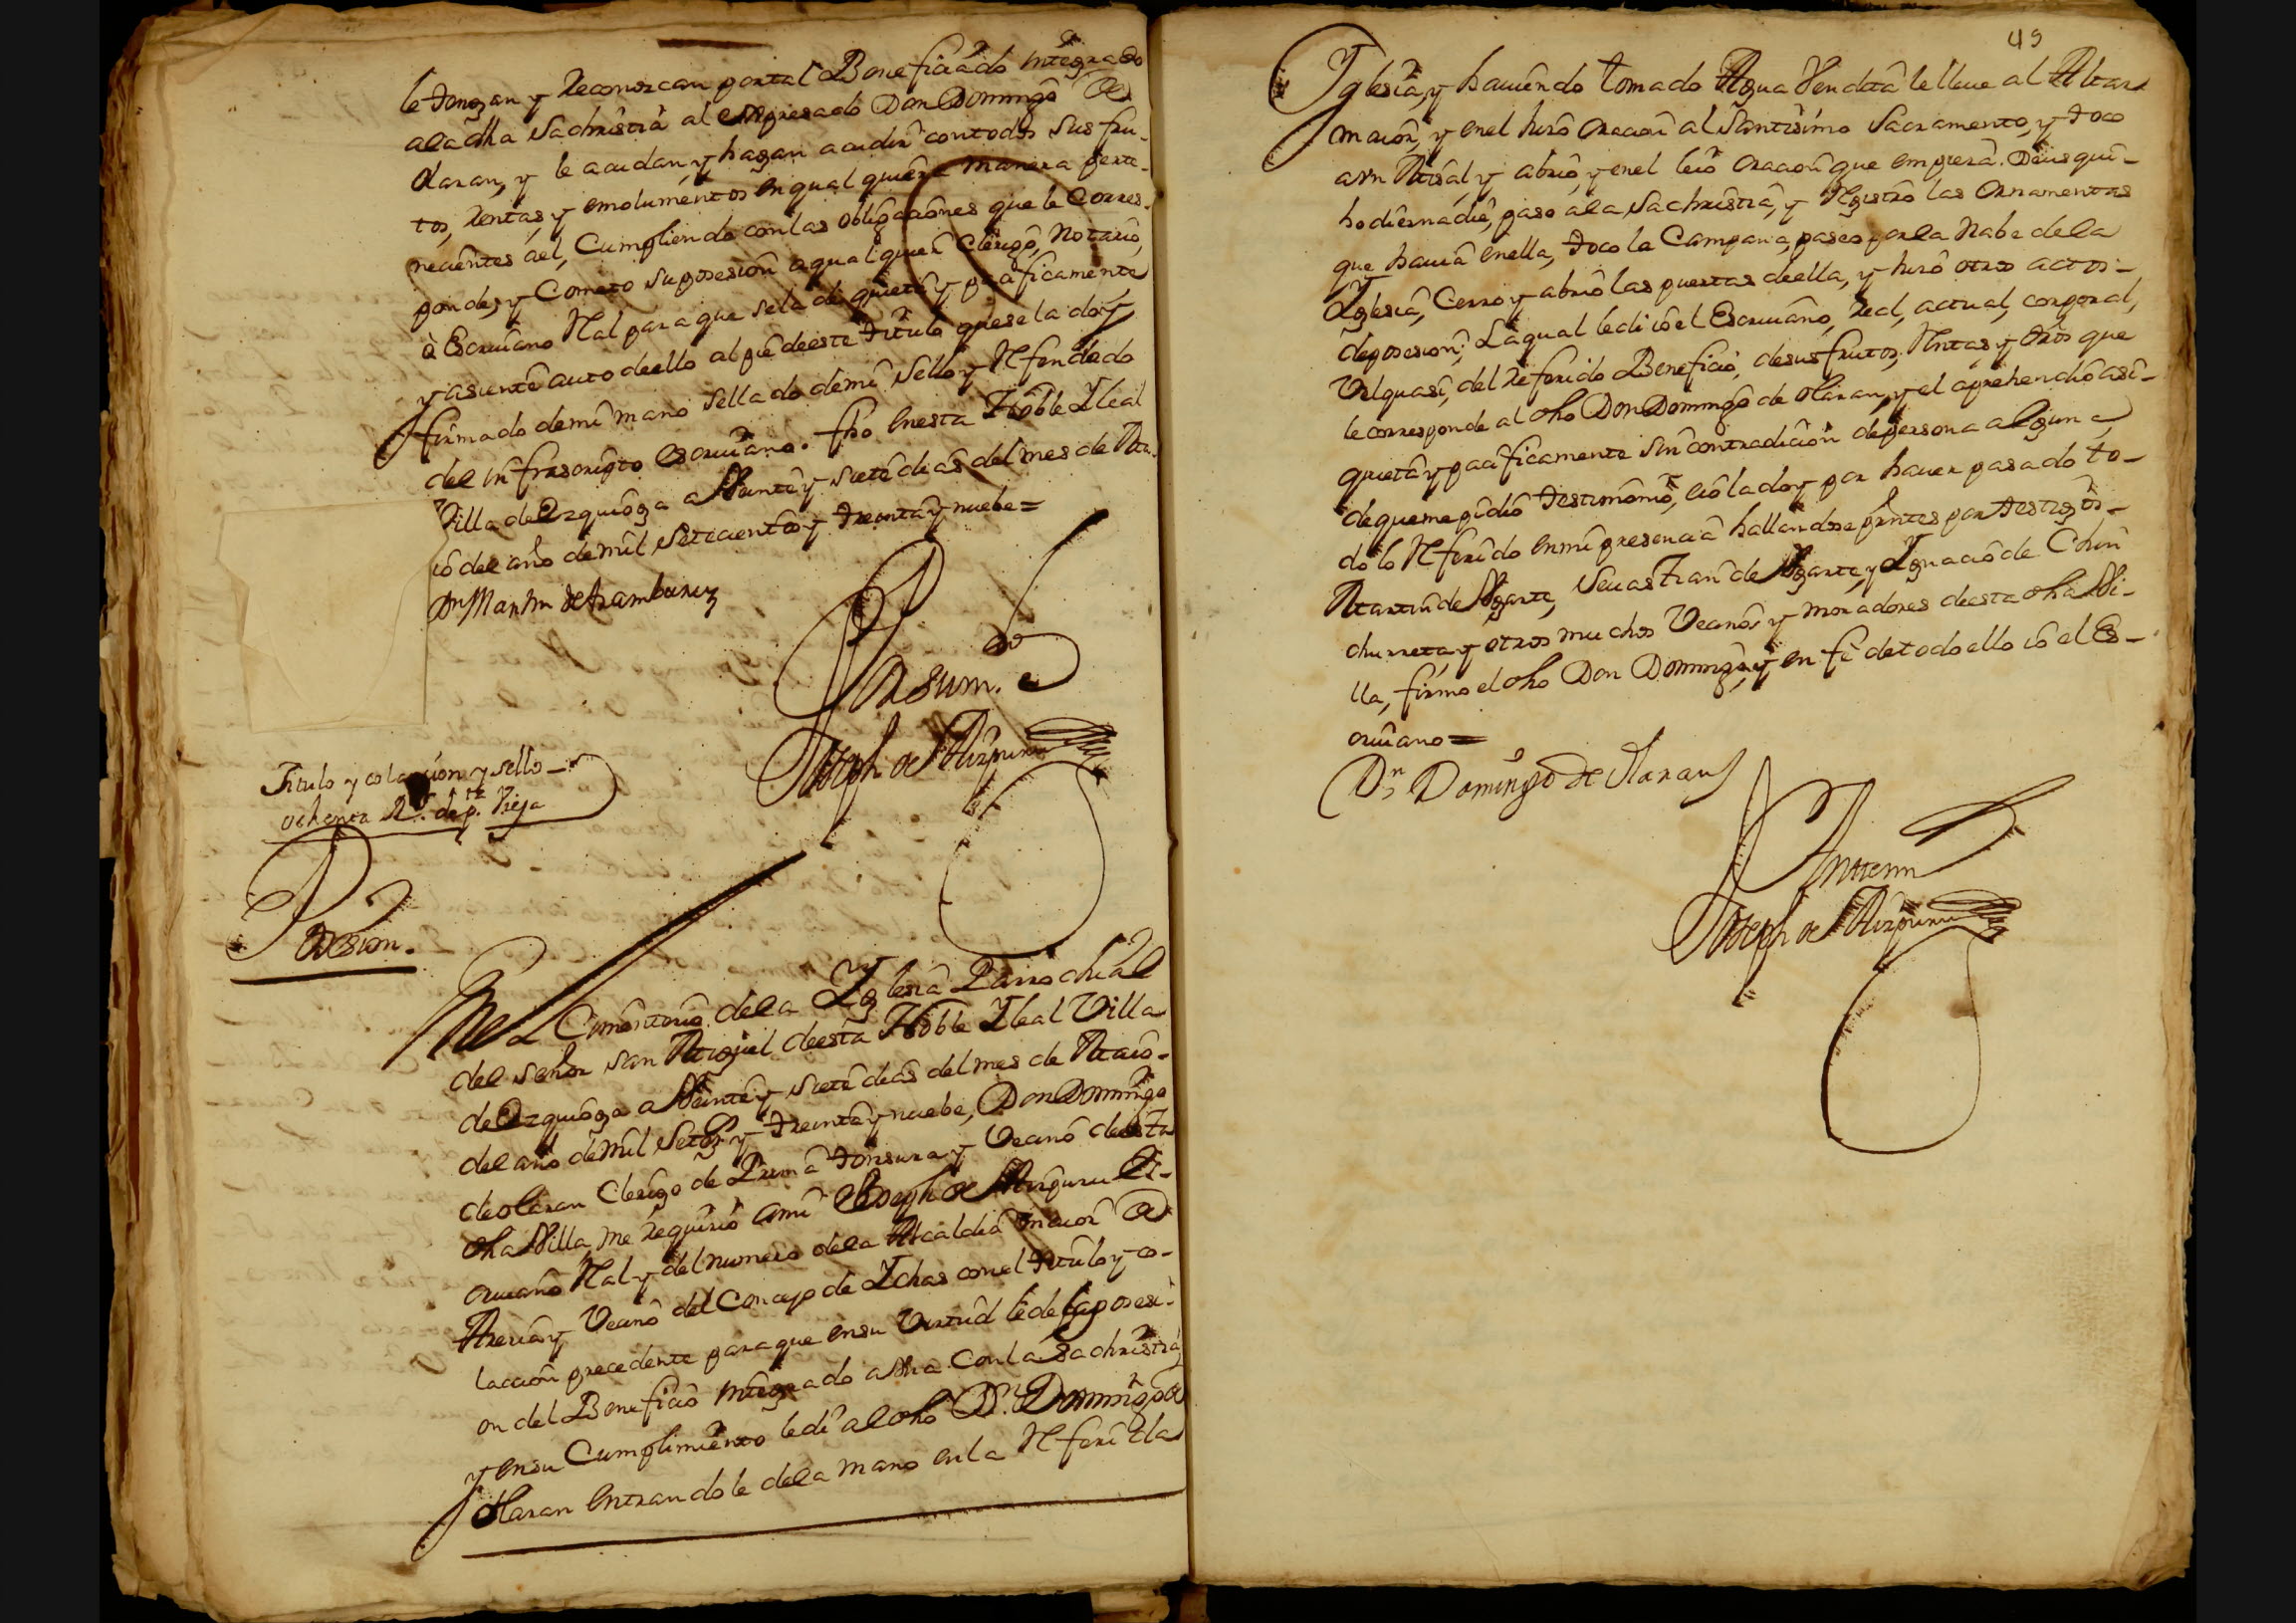 le tengan y Reconozcan por tal Beneficiado integrado
a la dha Sachristia al expresado Don Domingo de
Olaran, y le acudan, y hagan acudir con todos sus fru-
tos, Rentas, y emolumentos en qual quiera manera perte-
necientes a el, Cumpliendo con las obligaciones que le Corres-
ponde, y Cometo su posesion a qual quier Clerigo, Notario,
ô Escriuano Ral para que se la de quieta y pacificamente
y asiente auto de ello al pie de este titulo que se la doy
firmado de mi mano Sellado de mi Sello y Refrendado
del infrascripto escriuano. fho en esta Noble Y leal
Villa de Ezquioga a Veinte y siete dias del mes de Ma-
io del año de mil setecientos y treinta y nuebe =
Dn Martin de Aramburu
Por su m.do
Joseph de Aizpuru
Titulo y colacion y sello -
ochenta Rs. de pta. Vieja
Posesion.
En el Cimenterio de la Yglesia Parrochial
del señor san Miguel de esta Noble Y leal Villa
de Ezquioga a Veinte y siete dias del mes de Maio -
del año de mil Setos y treinta y nuebe, Don Domingo
de Olaran Clerigo de Prima tonsura y Vecino de esta
dha Villa, me Requirio a mi Joseph de Aizpuru Es-
criuano Ral y del numero de la Alcaldia maior de
Areria y Vecino del Concejo de Ychaso con el titulo y co-
lacion precedente para que en su Virtud le de la posesi-
on del Beneficio integrado a dha con la Sachristia,
y en su Cumplimiento le di al dho Dn. Domingo de
Olaran entrandole de la mano en la Referida
49
Yglesia, y hauiendo tomado Agua Vendita le lleue al Altar
maior, y en el hizo oracion al Santisimo Sacramento, y toco
a vn Misal y abrio, y en el leio oracion que empieza. Deus qui -
hodierna die, paso a la Sachristia, y Registro las Ornamentas
que hauia en ella, toco la Campana, paseo por la Nabe de la
Yglesia, Cerro y abrio las puertas de ella, y hizo otros actos -
de posesion; La qual le di io el Escriuano, Real, actual, corporal,
Vel quasi, del Referido Beneficio, de sus frutos, Rentas y dros que
le corresponde al dho Don Domingo de Olaran, y el aprehendio asi -
quieta y pacificamente sin contradicion de persona alguna,
de que me pidio testimonio, e io la doy por hauer pasado to -
do lo Referido en mi presencia hallandose presentes por testigos -
Martin de Ygarte, Seuastian de Ygarte, y Ygnacio de Echin
churreta, y otros muchos Vecinos y moradores de esta dha Vi -
lla, firmo el dho Don Domingo, y en fe de todo ello io el Es -
criuano =
Dn Domingo de Olaran
Ante mi
Joseph de Aizpuru